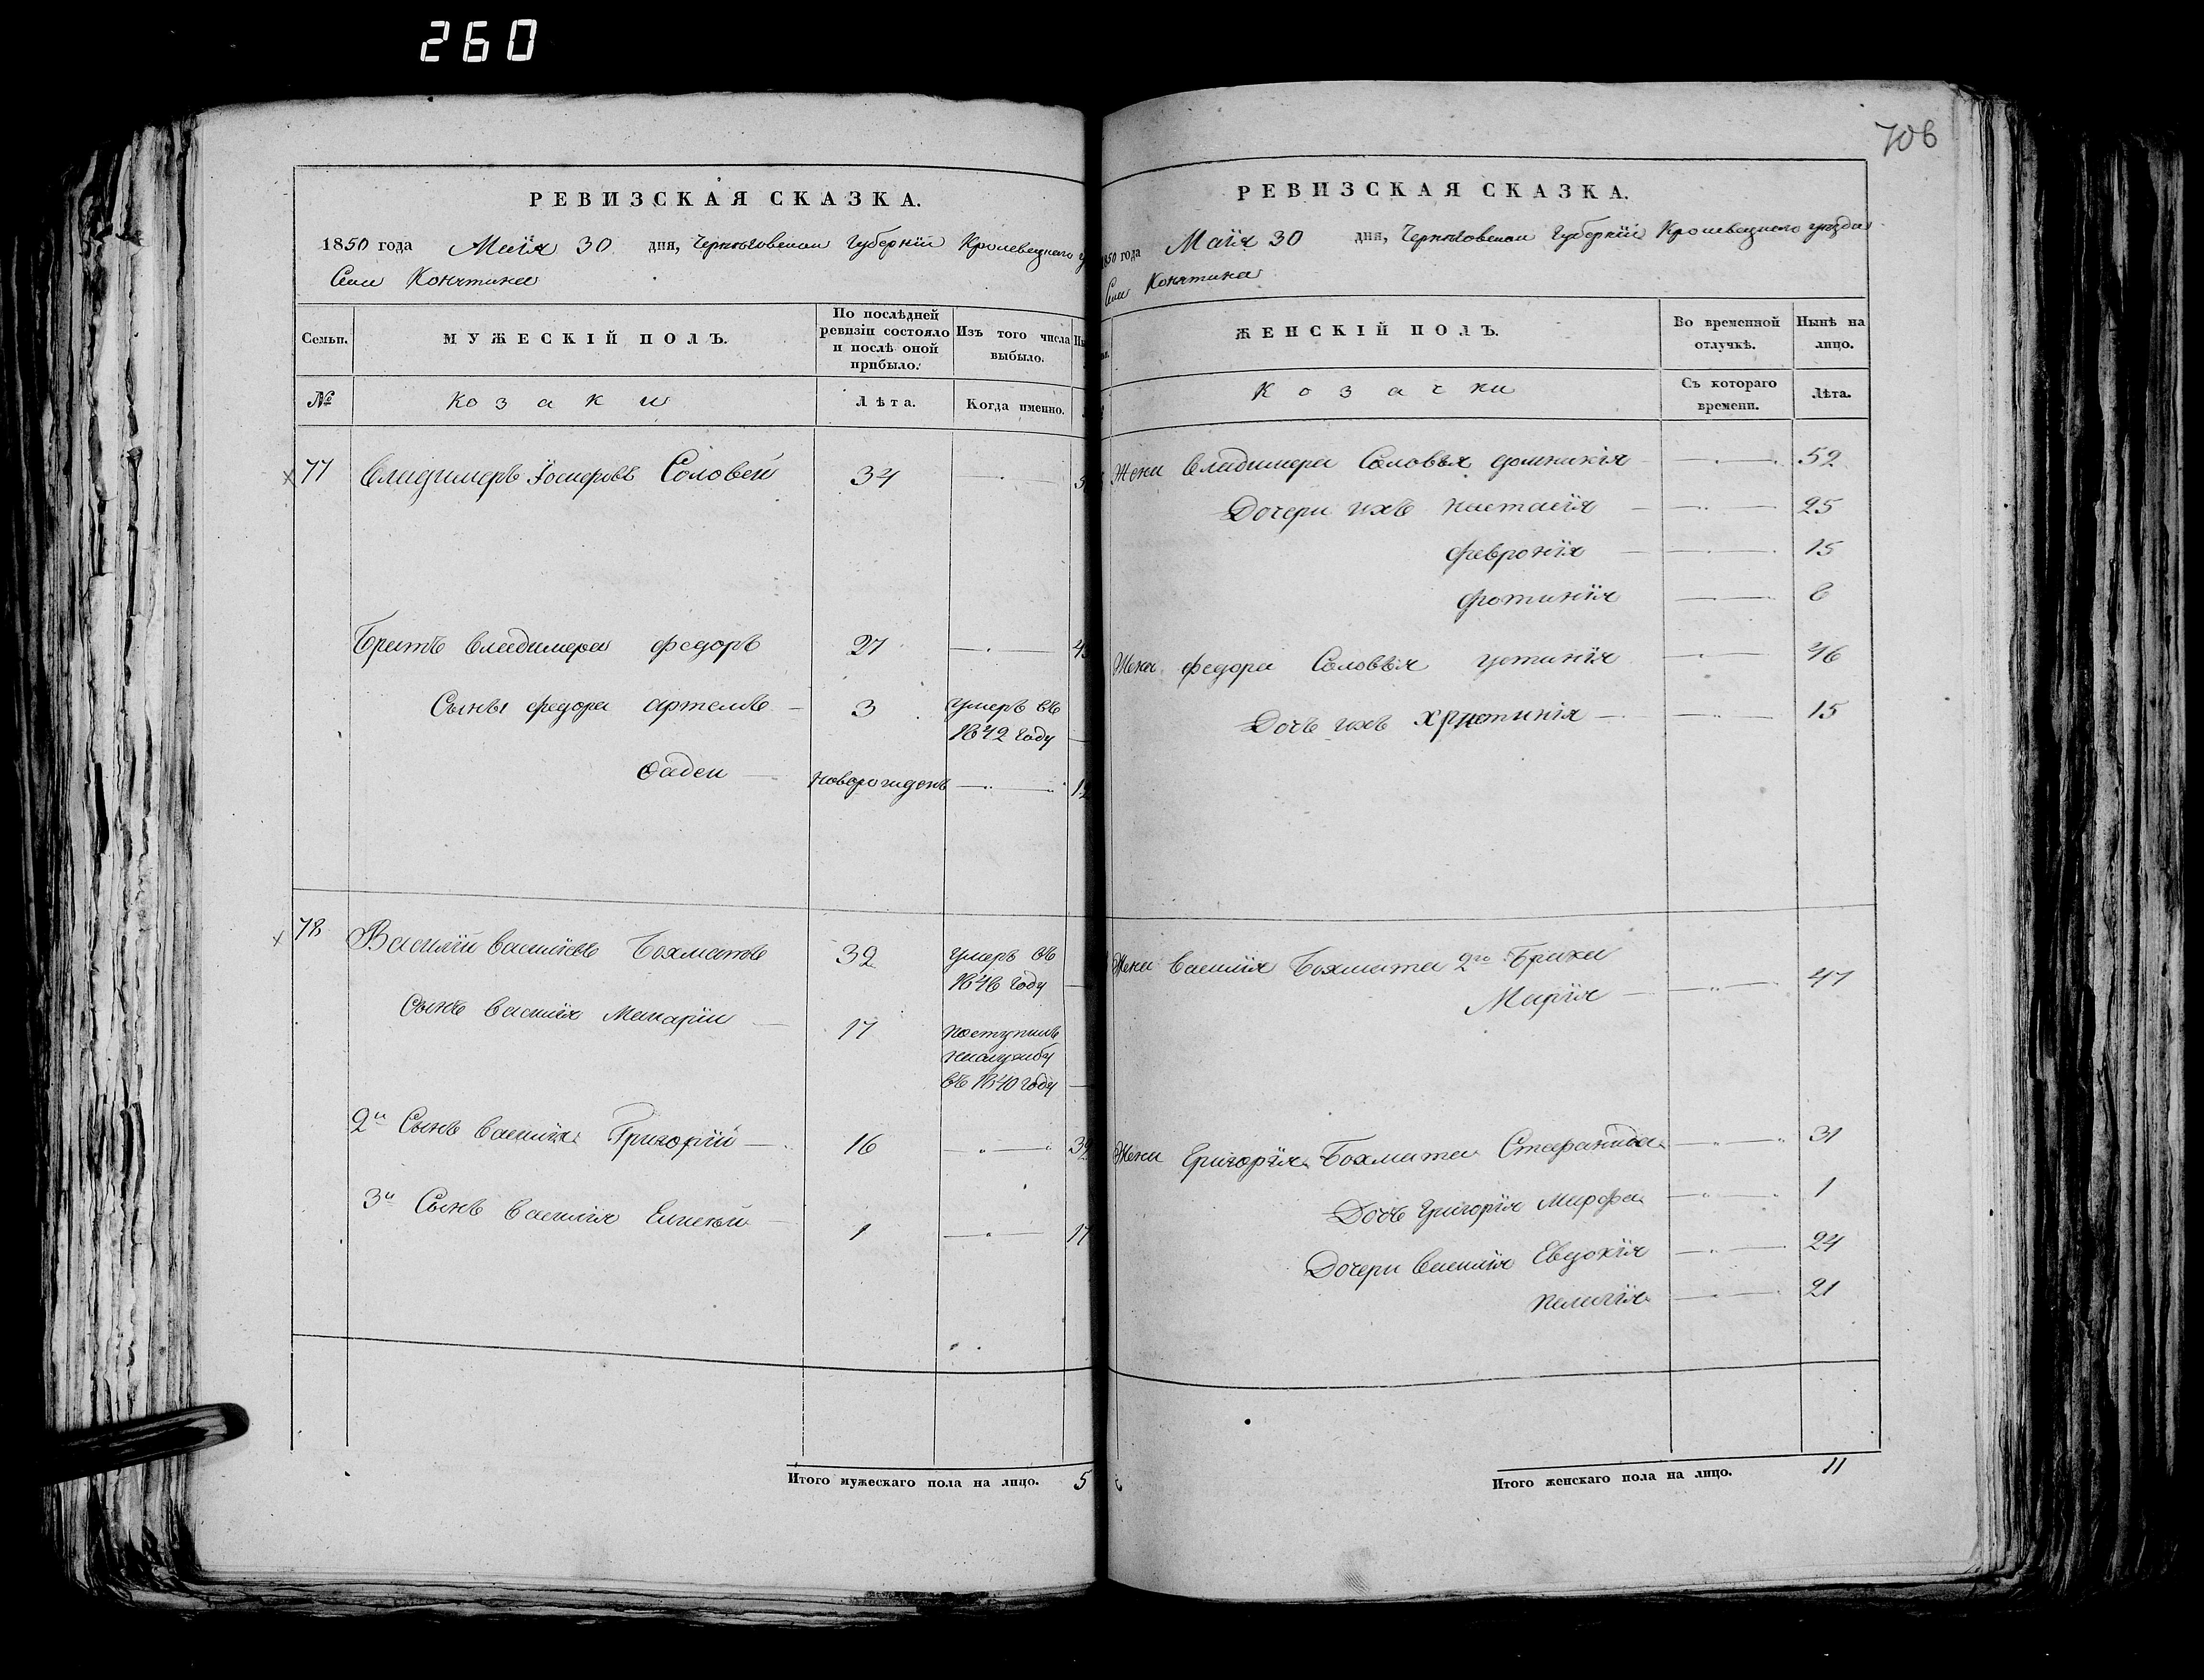 260
706
РЕВИЗСКАЯ СКАЗКА.
1850 года Маія 30 дня, Черниговской Губерніи Кролевецкаго у
Села Конятина
Семьи.
МУЖЕСКІЙ ПОЛЪ.
По послѣдней ревизіи состояло и послѣ оной прибыло.
Изъ того числа выбыло.
№
Козаки
Лѣта.
Когда именно.
77 Владимеръ Іосифовъ Соловей 34
Братъ Владимера Федоръ 27
Сыны Федора Артемъ 3 умеръ въ
1842 году
Фадей новорожденъ
78 Василій Васильевъ Бохматъ 32 умеръ въ
1846 году
Сынъ Василія Макарій 17 поступилъ
наслужбу
въ 1840 году
2й Сынъ Василія Григорій 16
3й Сынъ Василія 1 17
Итого мужескаго пола на лицо. 5
РЕВИЗСКАЯ СКАЗКА.
1850 года Маія 30 дня, Черниговской Губерніи Кролевецкаго уѣзда
Села Конятина
ЖЕНСКІЙ ПОЛЪ.
Во временной отлучкѣ.
Нынѣ на лицо.
Козачки
Съ котораго времени.
Лѣта.
Жена Владимера Соловья Домникія 52
Дочери ихъ Настасія 25
Февронія 15
Фотинія 6
Жена Федора Соловья Устинія 46
Дочь ихъ Христинія 15
Жена Василія Бохмата 2го Брака
Марія 47
Жена Григорія Бохмата Стефанида 31
Дочь Григорія Марфа 1
Дочери Василія Евдокія 24
Пелагія 21
Итого женскаго пола на лицо. 11